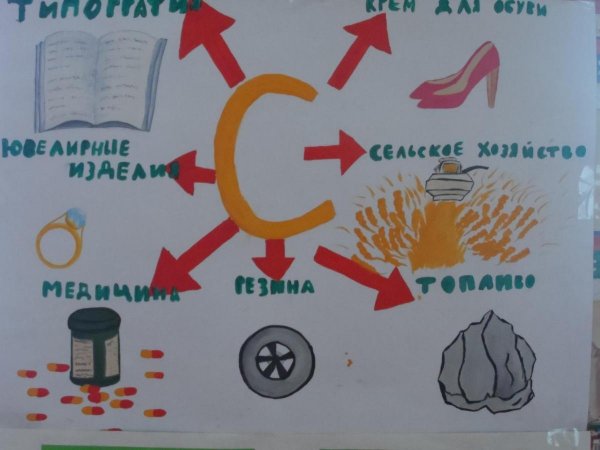 ТИПОГРАФИЯ
КРЕМ ДЛЯ ОБУВИ
ЮВЕЛИРНЫЕ
ИЗДЕЛИЯ
C
СЕЛЬСКОЕ ХОЗЯЙСТВО
МЕДИЦИНА
РЕЗИНА
ТОПЛИВО